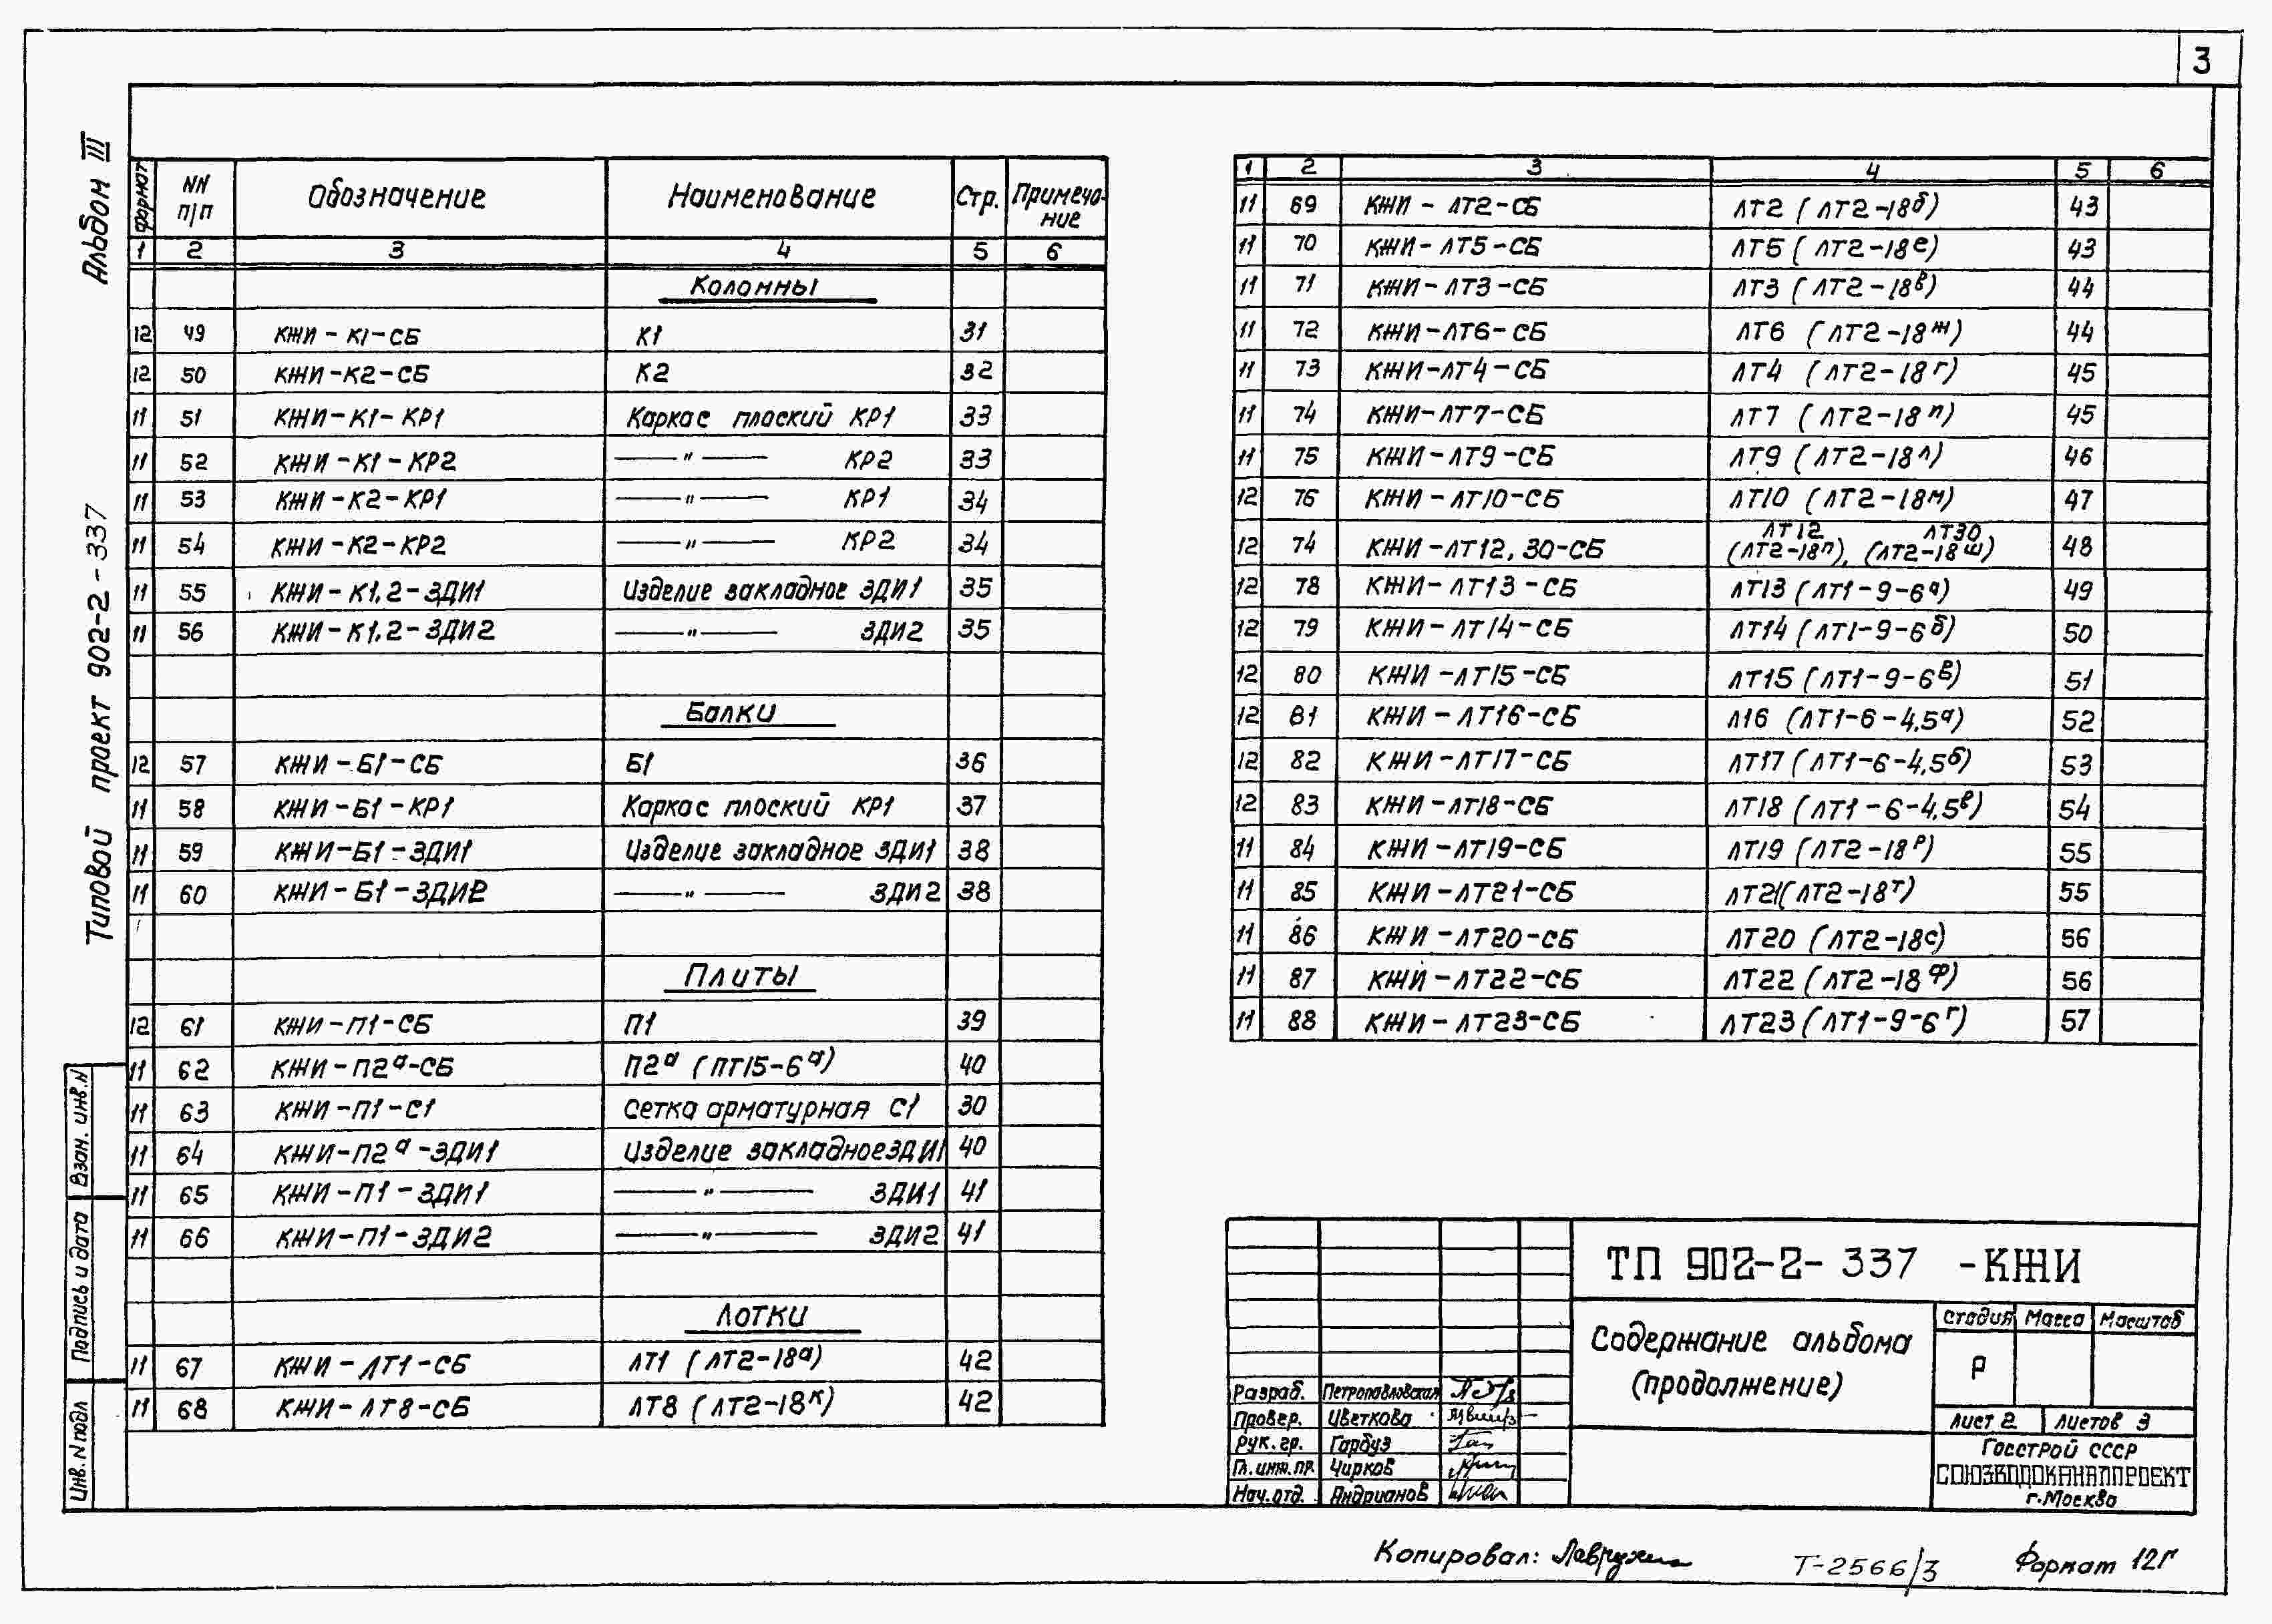 3
Альбом III
Типовой проект 902-2-337
Формат | NN п/п | Обозначение | Наименование | Стр. | Примечание
1 | 2 | 3 | 4 | 5 | 6
Колонны
12 | 49 | КЖИ-К1-СБ | К1 | 31
12 | 50 | КЖИ-К2-СБ | К2 | 32
11 | 51 | КЖИ-К1-КР1 | Каркас плоский КР1 | 33
11 | 52 | КЖИ-К1-КР2 | —"— КР2 | 33
11 | 53 | КЖИ-К2-КР1 | —"— КР1 | 34
11 | 54 | КЖИ-К2-КР2 | —"— КР2 | 34
11 | 55 | КЖИ-К1,2-ЗДИ1 | Изделие закладное ЗДИ1 | 35
11 | 56 | КЖИ-К1,2-ЗДИ2 | —"— ЗДИ2 | 35
Балки
12 | 57 | КЖИ-Б1-СБ | Б1 | 36
11 | 58 | КЖИ-Б1-КР1 | Каркас плоский КР1 | 37
11 | 59 | КЖИ-Б1-ЗДИ1 | Изделие закладное ЗДИ1 | 38
11 | 60 | КЖИ-Б1-ЗДИ2 | —"— ЗДИ2 | 38
Плиты
12 | 61 | КЖИ-П1-СБ | П1 | 39
11 | 62 | КЖИ-П2а-СБ | П2а (ПТ15-6а) | 40
11 | 63 | КЖИ-П1-С1 | Сетка арматурная С1 | 30
11 | 64 | КЖИ-П2а-ЗДИ1 | Изделие закладное ЗДИ1 | 40
11 | 65 | КЖИ-П1-ЗДИ1 | —"— ЗДИ1 | 41
11 | 66 | КЖИ-П1-ЗДИ2 | —"— ЗДИ2 | 41
Лотки
11 | 67 | КЖИ-ЛТ1-СБ | ЛТ1 (ЛТ2-18а) | 42
11 | 68 | КЖИ-ЛТ8-СБ | ЛТ8 (ЛТ2-18к) | 42
1 | 2 | 3 | 4 | 5 | 6
11 | 69 | КЖИ-ЛТ2-СБ | ЛТ2 (ЛТ2-18б) | 43
11 | 70 | КЖИ-ЛТ5-СБ | ЛТ5 (ЛТ2-18е) | 43
11 | 71 | КЖИ-ЛТ3-СБ | ЛТ3 (ЛТ2-18в) | 44
11 | 72 | КЖИ-ЛТ6-СБ | ЛТ6 (ЛТ2-18ж) | 44
11 | 73 | КЖИ-ЛТ4-СБ | ЛТ4 (ЛТ2-18г) | 45
11 | 74 | КЖИ-ЛТ7-СБ | ЛТ7 (ЛТ2-18и) | 45
11 | 75 | КЖИ-ЛТ9-СБ | ЛТ9 (ЛТ2-18л) | 46
12 | 76 | КЖИ-ЛТ10-СБ | ЛТ10 (ЛТ2-18м) | 47
12 | 74 | КЖИ-ЛТ12,30-СБ | ЛТ12 (ЛТ2-18п), ЛТ30 (ЛТ2-18ш) | 48
12 | 78 | КЖИ-ЛТ13-СБ | ЛТ13 (ЛТ1-9-6а) | 49
12 | 79 | КЖИ-ЛТ14-СБ | ЛТ14 (ЛТ1-9-6б) | 50
12 | 80 | КЖИ-ЛТ15-СБ | ЛТ15 (ЛТ1-9-6в) | 51
12 | 81 | КЖИ-ЛТ16-СБ | Л16 (ЛТ1-6-4,5а) | 52
12 | 82 | КЖИ-ЛТ17-СБ | ЛТ17 (ЛТ1-6-4,5б) | 53
12 | 83 | КЖИ-ЛТ18-СБ | ЛТ18 (ЛТ1-6-4,5в) | 54
11 | 84 | КЖИ-ЛТ19-СБ | ЛТ19 (ЛТ2-18р) | 55
11 | 85 | КЖИ-ЛТ21-СБ | ЛТ21 (ЛТ2-18т) | 55
11 | 86 | КЖИ-ЛТ20-СБ | ЛТ20 (ЛТ2-18с) | 56
11 | 87 | КЖИ-ЛТ22-СБ | ЛТ22 (ЛТ2-18ф) | 56
11 | 88 | КЖИ-ЛТ23-СБ | ЛТ23 (ЛТ1-9-6г) | 57
Взам. инв. N
Подпись и дата
Инв. N подл
ТП 902-2-337 -КЖИ
Содержание альбома
(продолжение)
Стадия | Масса | Масштаб
Р
Лист 2 | Листов 3
Госстрой СССР
СОЮЗВОДОКАНАЛПРОЕКТ
г. Москва
Разраб. Петропавловская
Провер. Цветкова
Рук. гр. Гарбуз
Гл. инж. пр. Чирков
Нач. отд. Андрианов
Копировал:
Т-2566/3
Формат 12Г